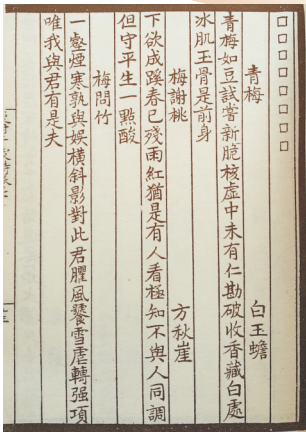 □□□□□□□□□
青梅　白玉蟾
青梅如豆試嘗新脆核虛中未有仁勘破收香藏白處
冰肌玉骨是前身
梅謝桃　方秋崖
下欲成蹊春已殘雨紅猶是有人看極知不與人同調
但守平生一點酸
梅問竹
一壑煙寒孰與娛橫斜影對此君臞風饕雪虐轉强項
唯我與君有是夫